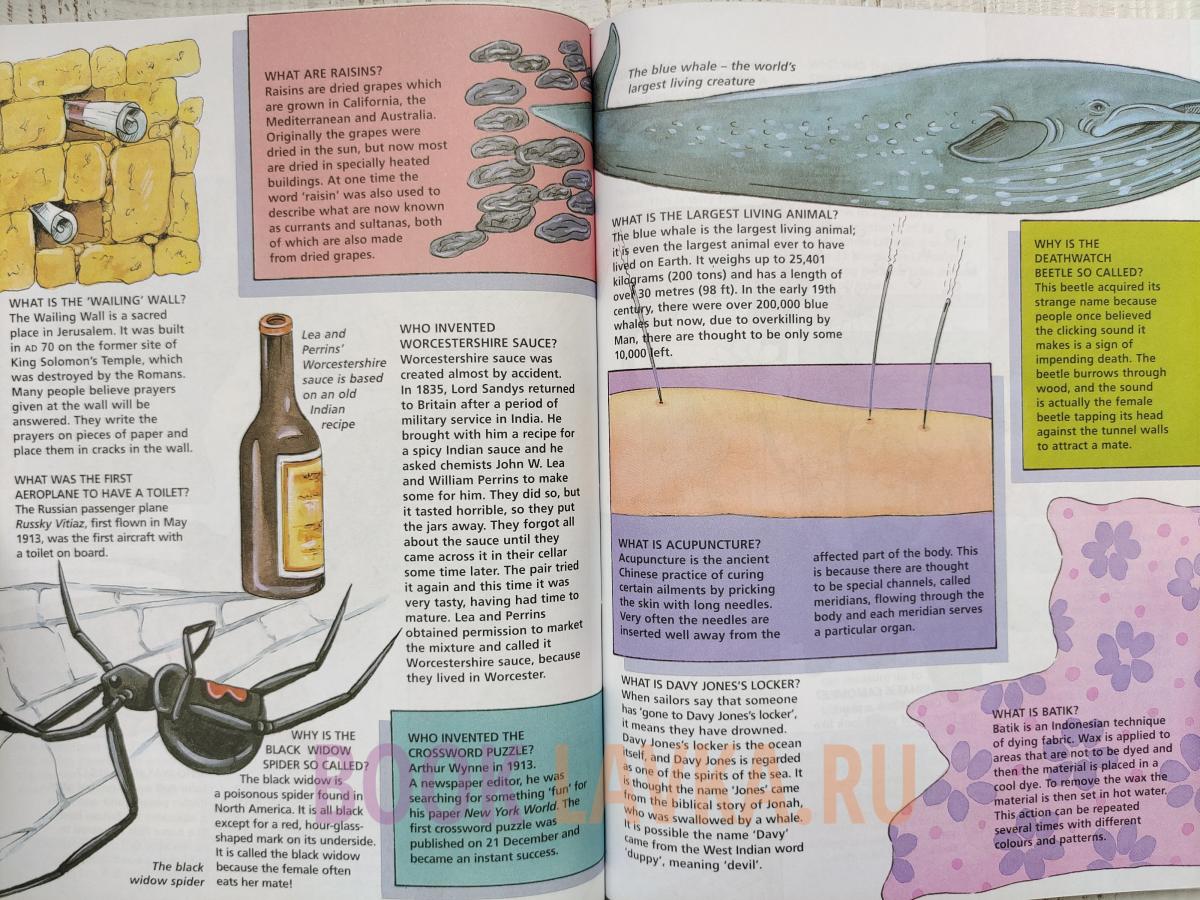 WHAT ARE RAISINS?
Raisins are dried grapes which
are grown in California, the
Mediterranean and Australia.
Originally the grapes were
dried in the sun, but now most
are dried in specially heated
buildings. At one time the
word 'raisin' was also used to
describe what are now known
as currants and sultanas, both
of which are also made
from dried grapes.
WHAT IS THE 'WAILING' WALL?
The Wailing Wall is a sacred
place in Jerusalem. It was built
in AD 70 on the former site of
King Solomon's Temple, which
was destroyed by the Romans.
Many people believe prayers
given at the wall will be
answered. They write the
prayers on pieces of paper and
place them in cracks in the wall.
WHAT WAS THE FIRST
AEROPLANE TO HAVE A TOILET?
The Russian passenger plane
Russky Vitiaz, first flown in May
1913, was the first aircraft with
a toilet on board.
Lea and
Perrins'
Worcestershire
sauce is based
on an old
Indian
recipe
WHO INVENTED
WORCESTERSHIRE SAUCE?
Worcestershire sauce was
created almost by accident.
In 1835, Lord Sandys returned
to Britain after a period of
military service in India. He
brought with him a recipe for
a spicy Indian sauce and he
asked chemists John W. Lea
and William Perrins to make
some for him. They did so, but
it tasted horrible, so they put
the jars away. They forgot all
about the sauce until they
came across it in their cellar
some time later. The pair tried
it again and this time it was
very tasty, having had time to
mature. Lea and Perrins
obtained permission to market
the mixture and called it
Worcestershire sauce, because
they lived in Worcester.
WHY IS THE
BLACK WIDOW
SPIDER SO CALLED?
The black widow is
a poisonous spider found in
North America. It is all black
except for a red, hour-glass-
shaped mark on its underside.
It is called the black widow
because the female often
eats her mate!
The black
widow spider
WHO INVENTED THE
CROSSWORD PUZZLE?
Arthur Wynne in 1913.
A newspaper editor, he was
searching for something 'fun' for
his paper New York World. The
first crossword puzzle was
published on 21 December and
became an instant success.
The blue whale – the world's
largest living creature
WHAT IS THE LARGEST LIVING ANIMAL?
The blue whale is the largest living animal;
it is even the largest animal ever to have
lived on Earth. It weighs up to 25,401
kilograms (200 tons) and has a length of
over 30 metres (98 ft). In the early 19th
century, there were over 200,000 blue
whales but now, due to overkilling by
Man, there are thought to be only some
10,000 left.
WHY IS THE
DEATHWATCH
BEETLE SO CALLED?
This beetle acquired its
strange name because
people once believed
the clicking sound it
makes is a sign of
impending death. The
beetle burrows through
wood, and the sound
is actually the female
beetle tapping its head
against the tunnel walls
to attract a mate.
WHAT IS ACUPUNCTURE?
Acupuncture is the ancient
Chinese practice of curing
certain ailments by pricking
the skin with long needles.
Very often the needles are
inserted well away from the
affected part of the body. This
is because there are thought
to be special channels, called
meridians, flowing through the
body and each meridian serves
a particular organ.
WHAT IS DAVY JONES'S LOCKER?
When sailors say that someone
has 'gone to Davy Jones's locker',
it means they have drowned.
Davy Jones's locker is the ocean
itself, and Davy Jones is regarded
as one of the spirits of the sea. It
is thought the name 'Jones' came
from the biblical story of Jonah,
who was swallowed by a whale.
It is possible the name 'Davy'
came from the West Indian word
'duppy', meaning 'devil'.
WHAT IS BATIK?
Batik is an Indonesian technique
of dying fabric. Wax is applied to
areas that are not to be dyed and
then the material is placed in a
cool dye. To remove the wax the
material is then set in hot water.
This action can be repeated
several times with different
colours and patterns.
BOOKLAVKA.RU